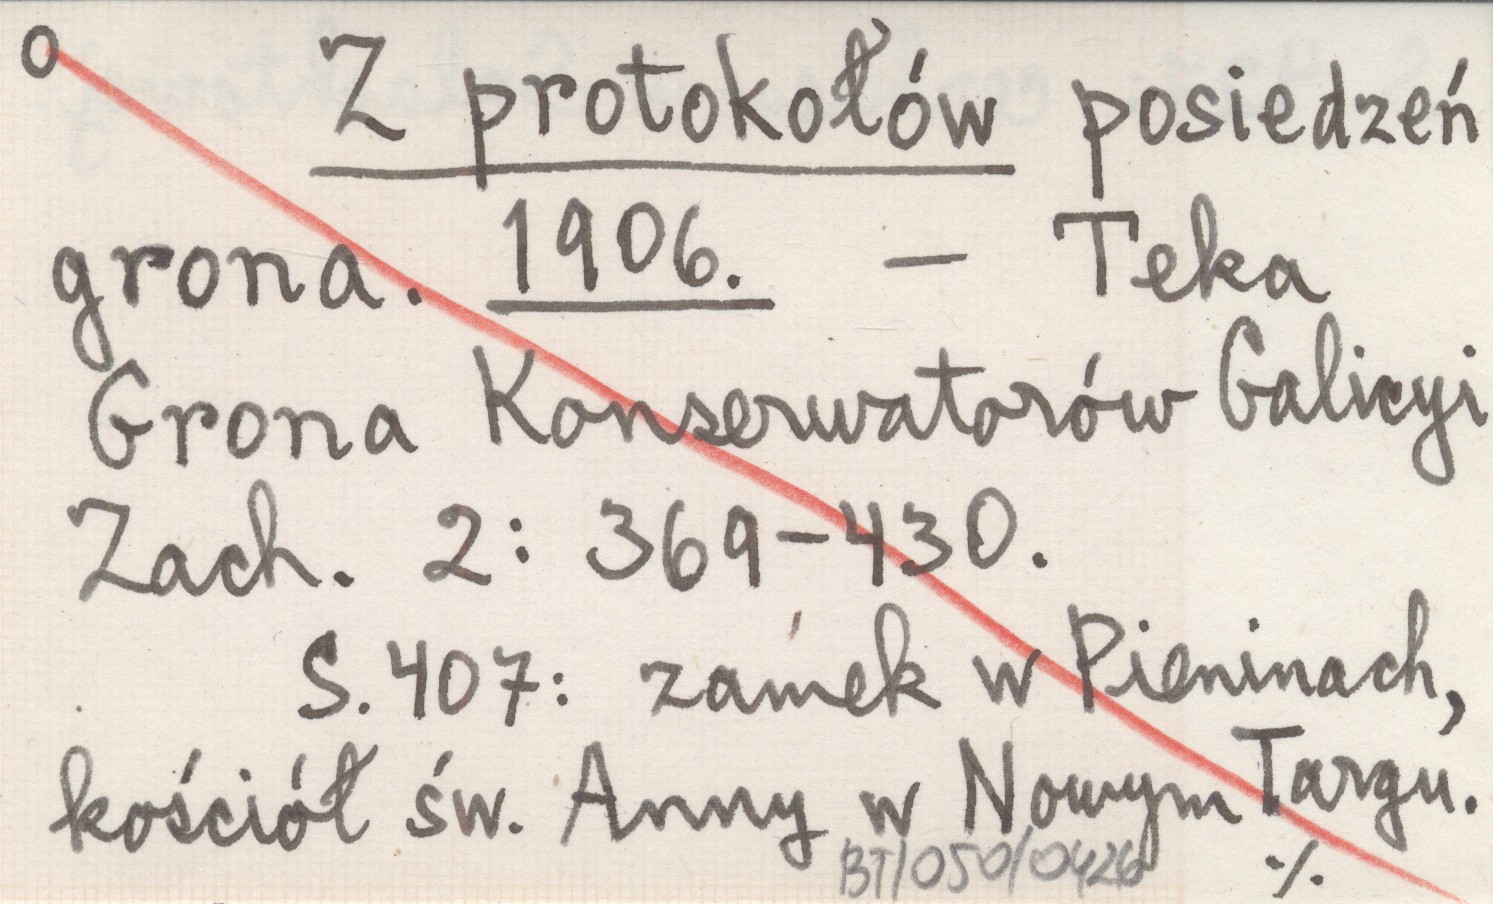 O Z protokołów posiedzeń
grona. 1906. – Teka
Grona Konserwatorów Galicyi
Zach. 2: 369–430.
S. 407: zamek w Pieninach,
kościół św. Anny w Nowym Targu.
BT/050/0426 ./.